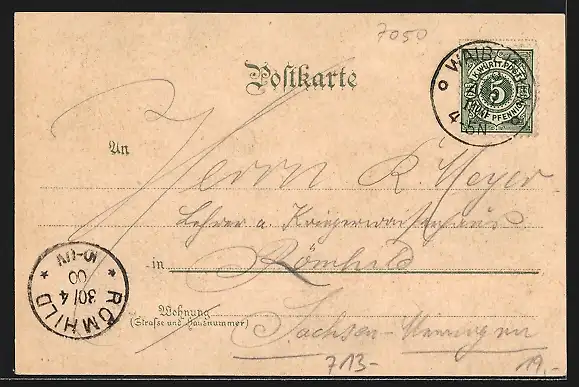 7050
Postkarte
WAIBL
K. WÜRTT. POST
5
FÜNF PFENNIG
An
Herrn K. Meyer
Lehrer a. Kriegerwaisenhaus
in Römhild
Wohnung
(Straße und Hausnummer)
Sachsen-Meiningen
RÖMHILD
30/4
00
10-11V
713.-
19.-